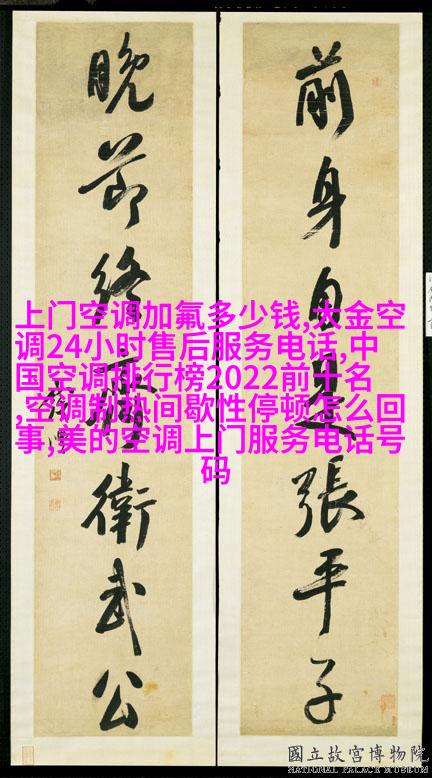 前身自是張平子
晚節終衛武公
上门空调加氟多少钱,大金空
调24小时售后服务电话,中
国空调排行榜2022前十名
,空调制热间歇性停顿怎么回
事,美的空调上门服务电话号
码
國立故宮博物院
NATIONAL PALACE MUSEUM